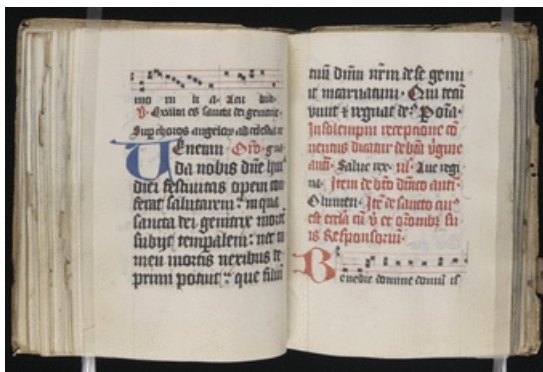 mo m li a. Aeu dia.
℣. Exalta es sancta dei genitrix.
Sup choros angelor ad celestia r
Veneran. Oro. g
da nobis dne hui
diei festiuitas opem con
ferat salutarem: in qua
sancta dei genitrix morte
subijt temporalem: nec ta
men mortis nexibus de
primi potuit: que filiu
tuu dnm nrm de se genu
it incarnatum. Qui tecu
viuit & regnat de9. Pona.
In solempni receptione co
uentus dicatur de bta vgine
anti. Salue rex. ul. Aue regi
na. Item de bto dinco anti.
O lumen. Ite de sancto cui9
est ecclia cu ℣ et oronibus su
is Responsoriu.
Benedic domine domu is